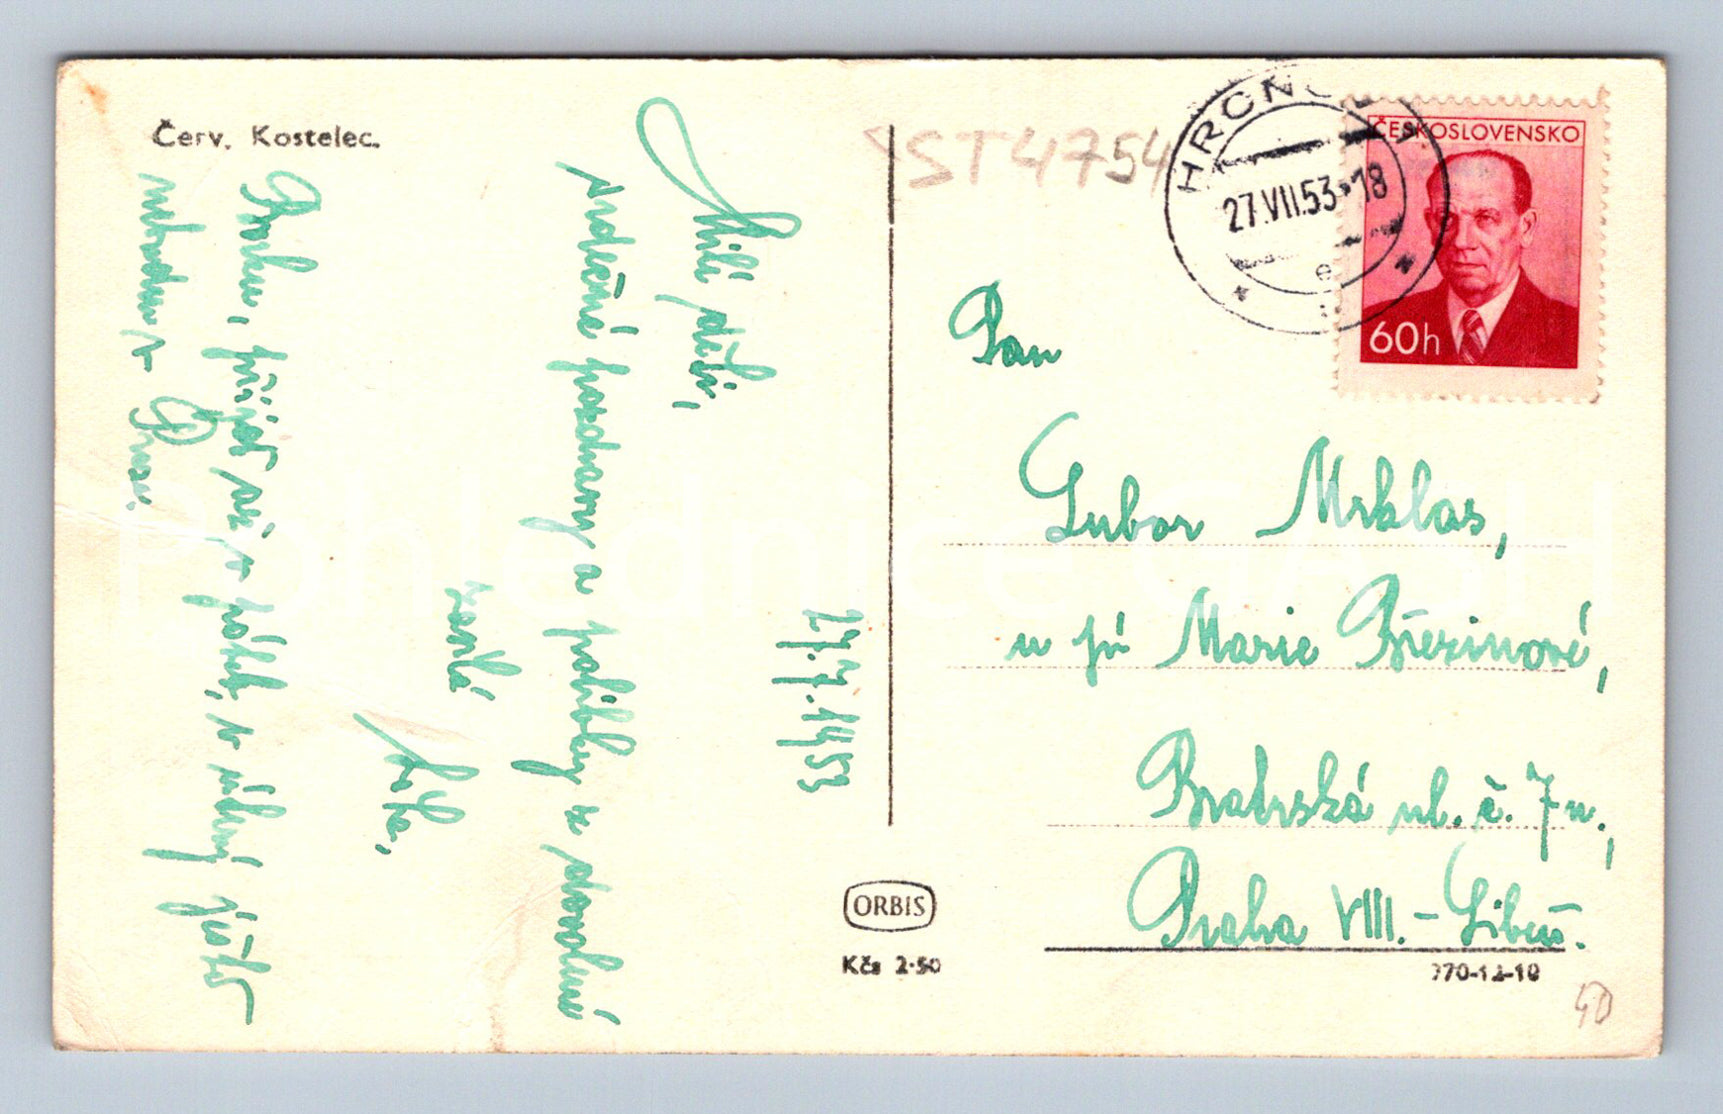 Červ. Kostelec.
27.7.1953
Milí děti,
srdečné pozdravy a polibky z dovolené
zasílá
Bořku, přijeď až v pátek, v úterý ještě
nebudu v Praze.
ST4754
HRONOV
27.VII.53-18
e
ČESKOSLOVENSKO
60h
Pan
Lubor Mrklas,
u pí Marie Březinové,
Bratrská ul. č. 7 n.,
Praha VIII.-Libeň.
ORBIS
Kčs 2·50
Pohlednice
40